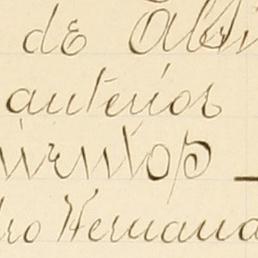 de Abri
anterior
uientos
dro Hernand